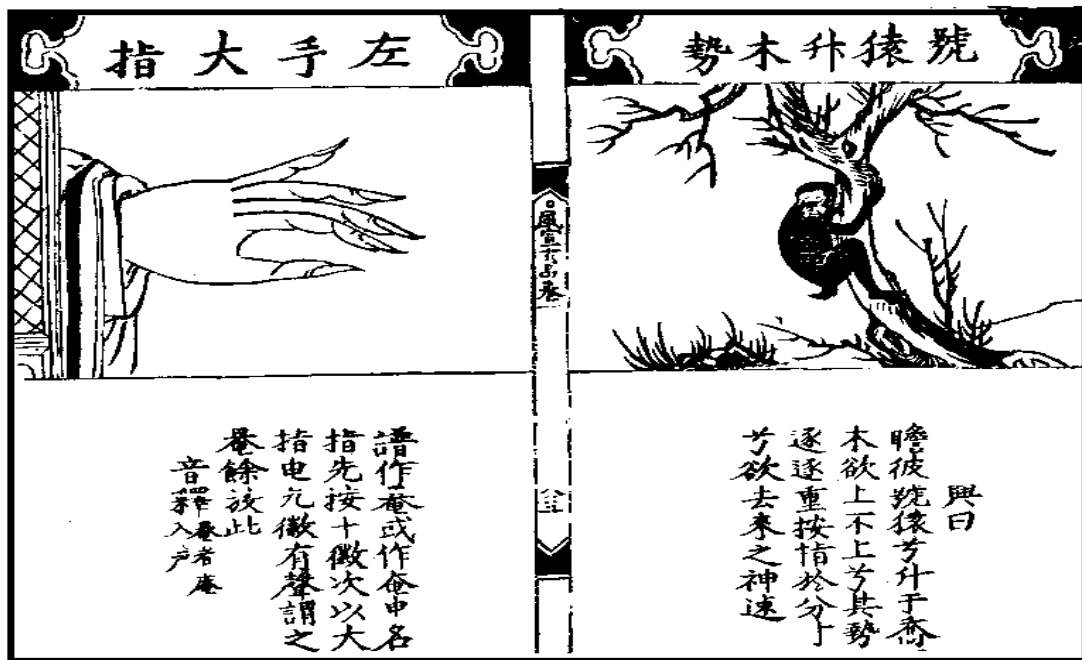 號猿升木勢
興曰
瞻彼號猿兮升于喬
木欲上不上兮其勢
逐逐重按指於分
兮欲去來之神速
風宣玄品卷
左手大指
譜作菴或作奄申名
指先按十徽次以大
指电九徽有聲謂之
罨餘放此
音釋
入声